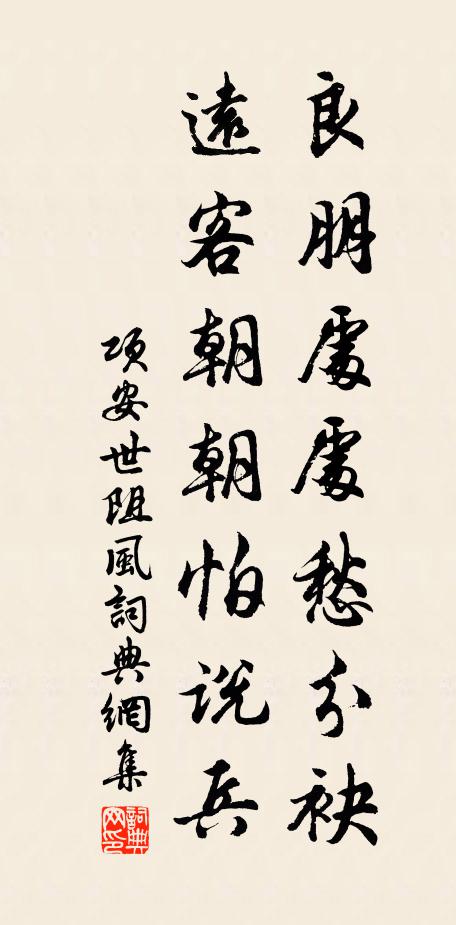 良朋處處愁分袂
遠客朝朝怕說兵
項安世阻風詞典網集
詞典網印